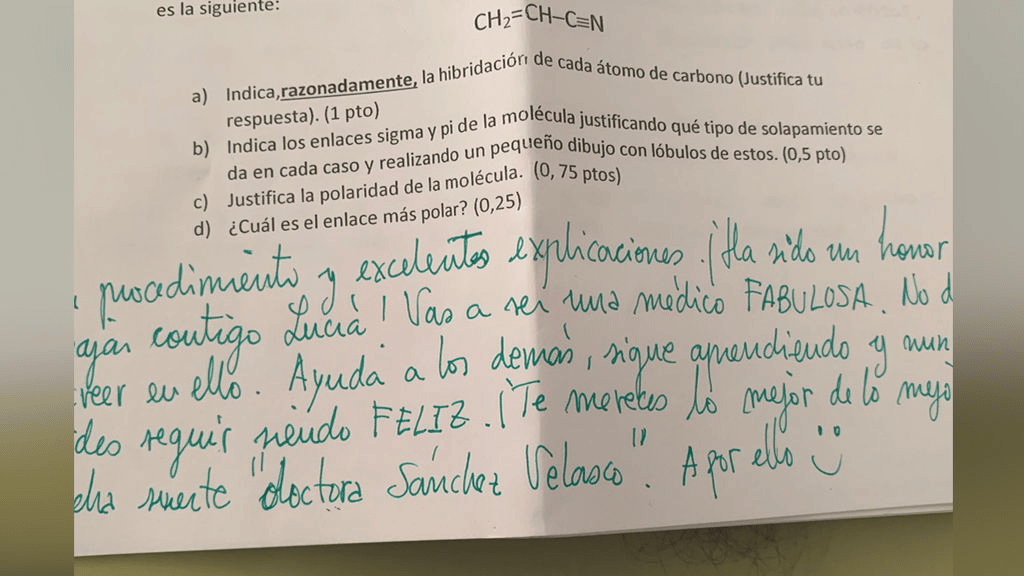 es la siguiente:
CH₂=CH–C≡N
a) Indica,razonadamente, la hibridación de cada átomo de carbono (Justifica tu
respuesta). (1 pto)
b) Indica los enlaces sigma y pi de la molécula justificando qué tipo de solapamiento se
da en cada caso y realizando un pequeño dibujo con lóbulos de estos. (0,5 pto)
c) Justifica la polaridad de la molécula. (0, 75 ptos)
d) ¿Cuál es el enlace más polar? (0,25)
procedimiento y excelentes explicaciones. ¡Ha sido un honor
contigo Lucía! Vas a ser una médico FABULOSA. No d
creer en ello. Ayuda a los demás, sigue aprendiendo y nun
des seguir siendo FELIZ. ¡Te mereces lo mejor de lo mejo
cha suerte "doctora Sánchez Velasco". A por ello